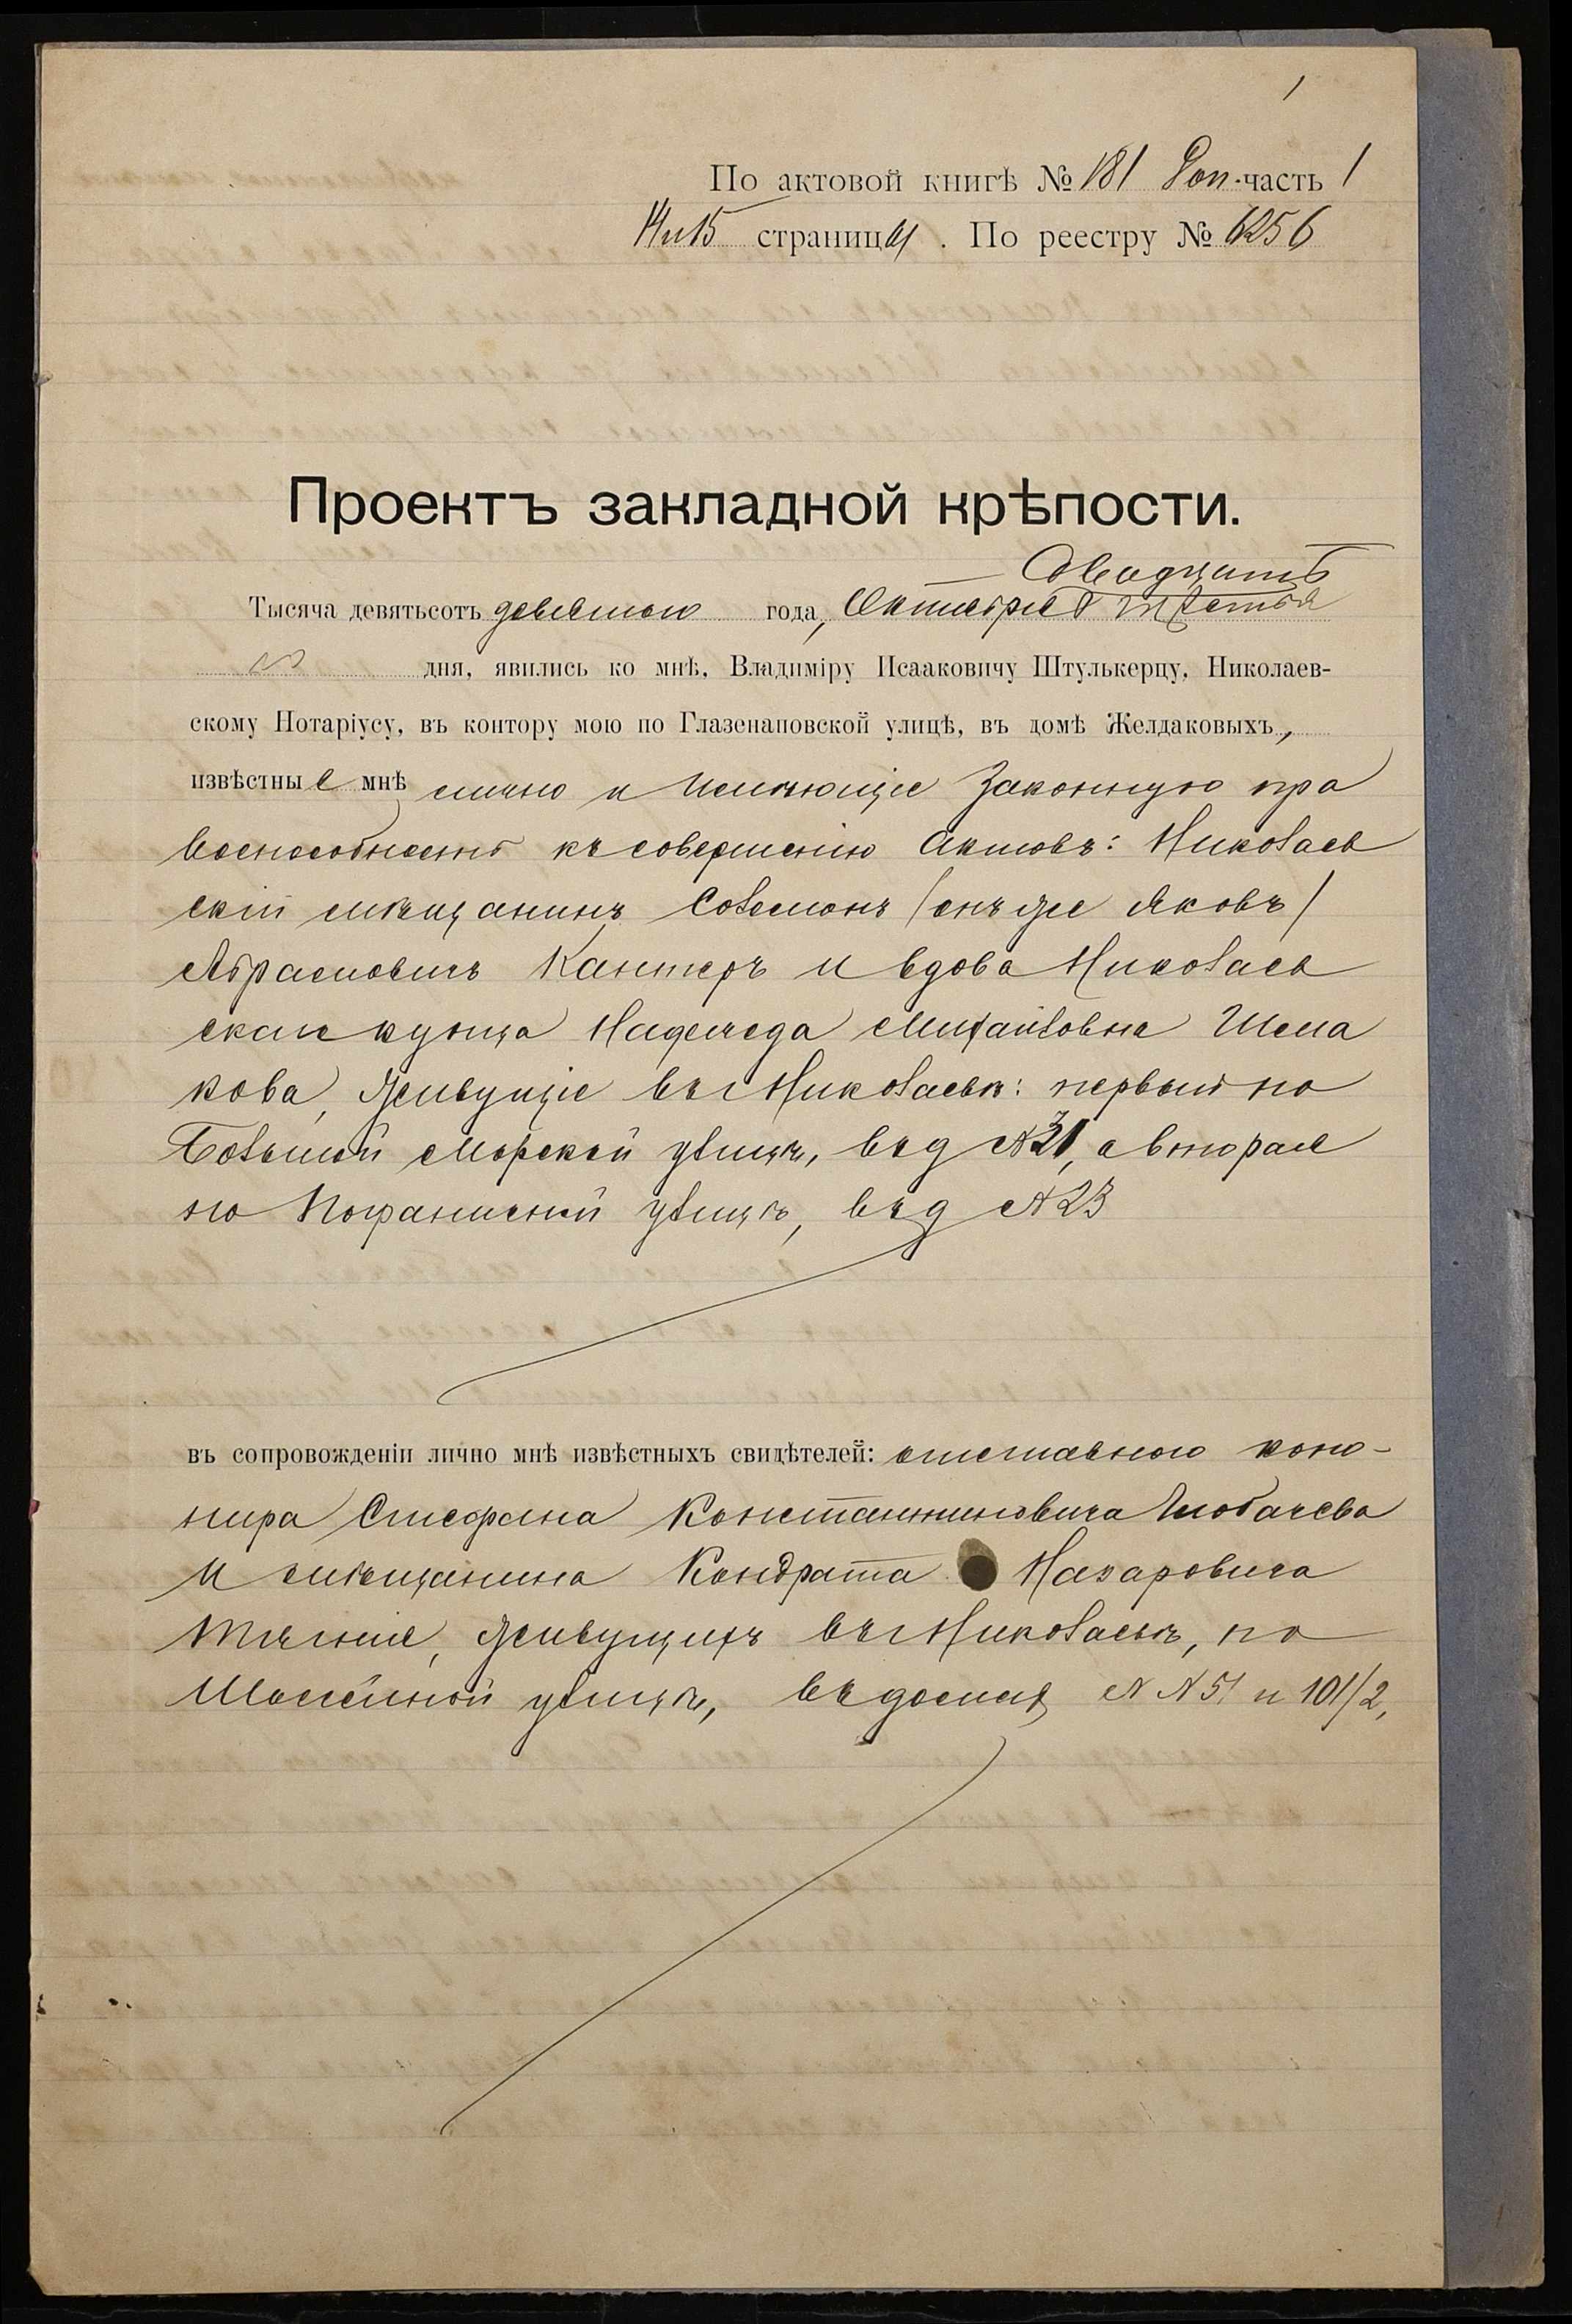 1
По актовой книгѣ № 181 Доп. часть 1
14 и 15 страницы. По реестру № 6256
Проектъ закладной крѣпости.
Двадцать
Тысяча девятьсотъ девятого года, Октября третья
го дня, явились ко мнѣ, Владиміру Исааковичу Штулькерцу, Николаев-
скому Нотаріусу, въ контору мою по Глазенаповской улицѣ, въ домѣ Желдаковыхъ,
извѣстные мнѣ лично и имѣющіе законную пра
воспособность къ совершенію актовъ: Николаев
скій мѣщанинъ Соломонъ /онъ же Яковъ/
Абрамовичъ Кантеръ и вдова Николаев
скаго купца Надежда Михайловна Шома
кова, живущіе въ г Николаевѣ: первый по
Большой Морской улицѣ, въ д № 21, а вторая
по Пограничной улицѣ, въ д № 23
въ сопровожденіи лично мнѣ извѣстныхъ свидѣтелей: отставного коно-
нира Стефана Константиновича Глобачева
и мѣщанина Кондрата Назаровича
живущихъ въ г Николаевѣ, по
улицѣ, въ домахъ № № 51 и 101/2,